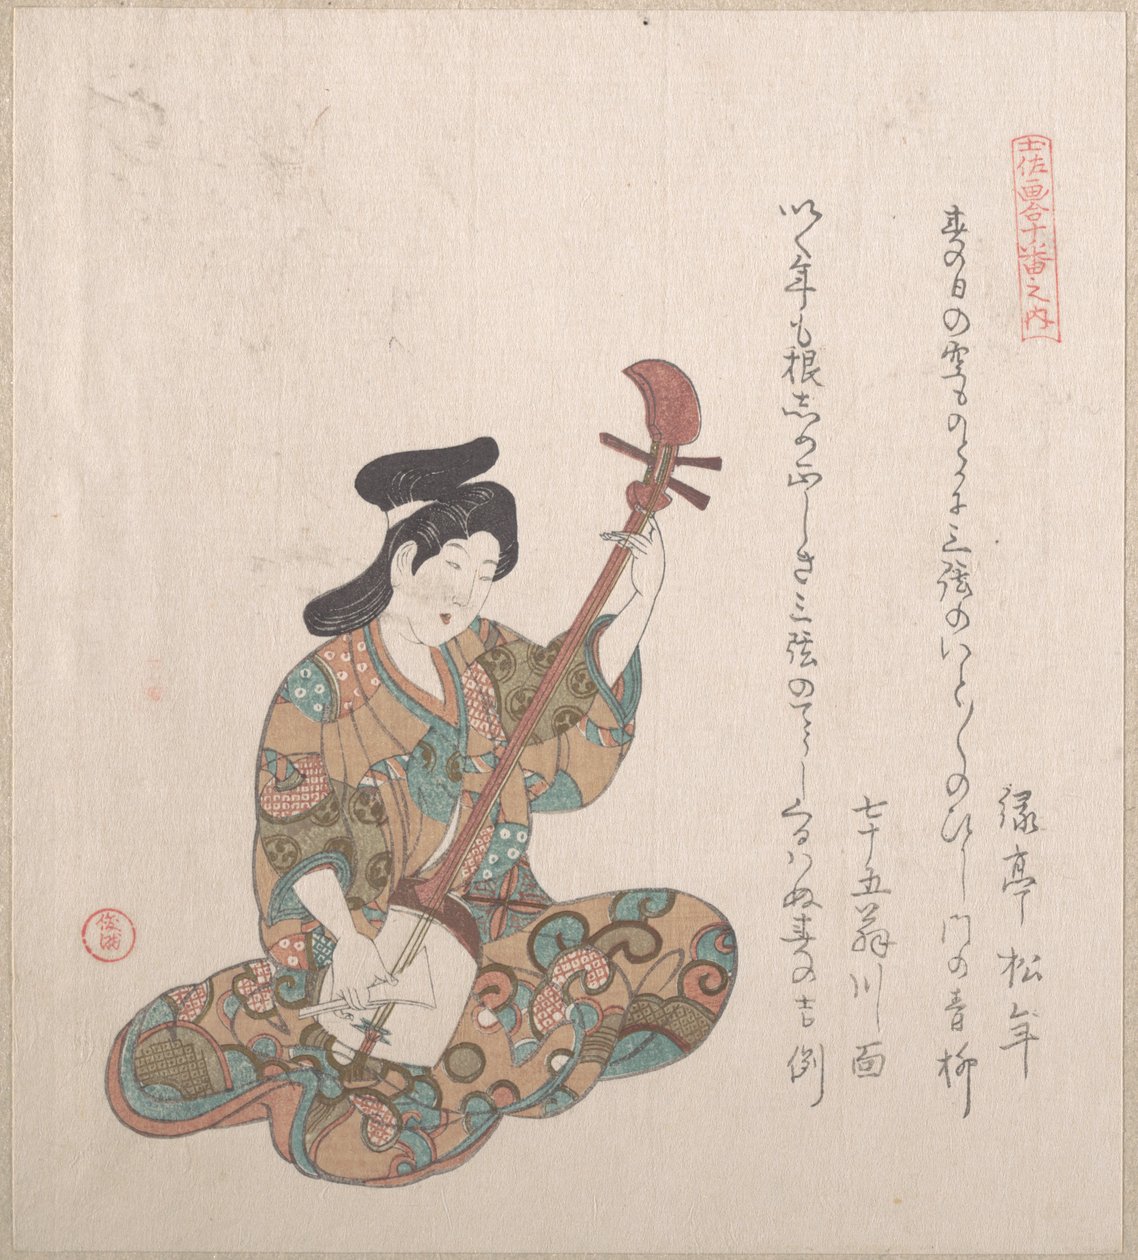 土佐画合十番之内
緑亭松年
春の日の空ものとかに三弦のいとくりのへし門の青柳
七十五翁川面
いく年も根しめ正しき三弦の てうしくるはぬ春の吉例
俊満